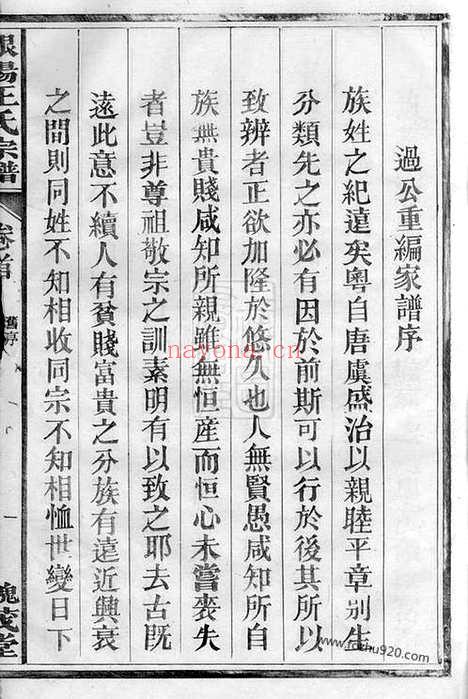 過公重編家譜序
族姓之紀遠矣粵自唐虞盛治以親睦平章別生
分類先之亦必有因於前斯可以行於後其所以
致辨者正欲加隆於悠久也人無賢愚咸知所自
族無貴賤咸知所親雖無恒産而恒心未嘗喪失
者豈非尊祖敬宗之訓素明有以致之耶去古既
遠此意不續人有貧賤富貴之分族有遠近興衰
之間則同姓不知相收同宗不知相恤世變日下
陽王氏宗譜
卷首
舊序
一
槐茂堂
nayona.cn
www.fozhu920.com